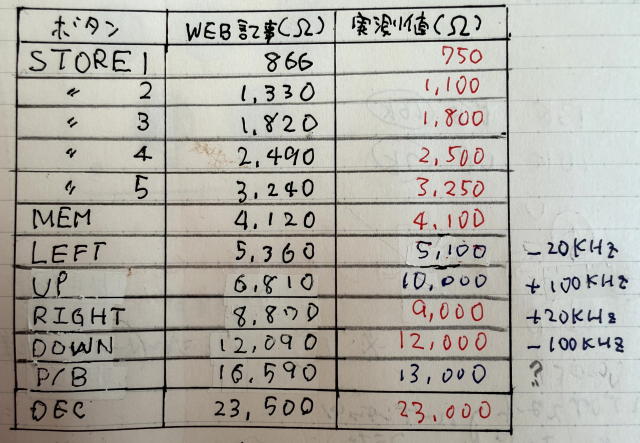 ボタン WEB記事(Ω) 実測値(Ω)
STORE1 866 750
〃 2 1,330 1,100
〃 3 1,820 1,800
〃 4 2,490 2,500
〃 5 3,240 3,250
MEM 4,120 4,100
LEFT 5,360 5,100 -20KHz
UP 6,810 10,000 +100KHz
RIGHT 8,870 9,000 +20KHz
DOWN 12,090 12,000 -100KHz
P/B 16,590 13,000 ?
DEC 23,500 23,000